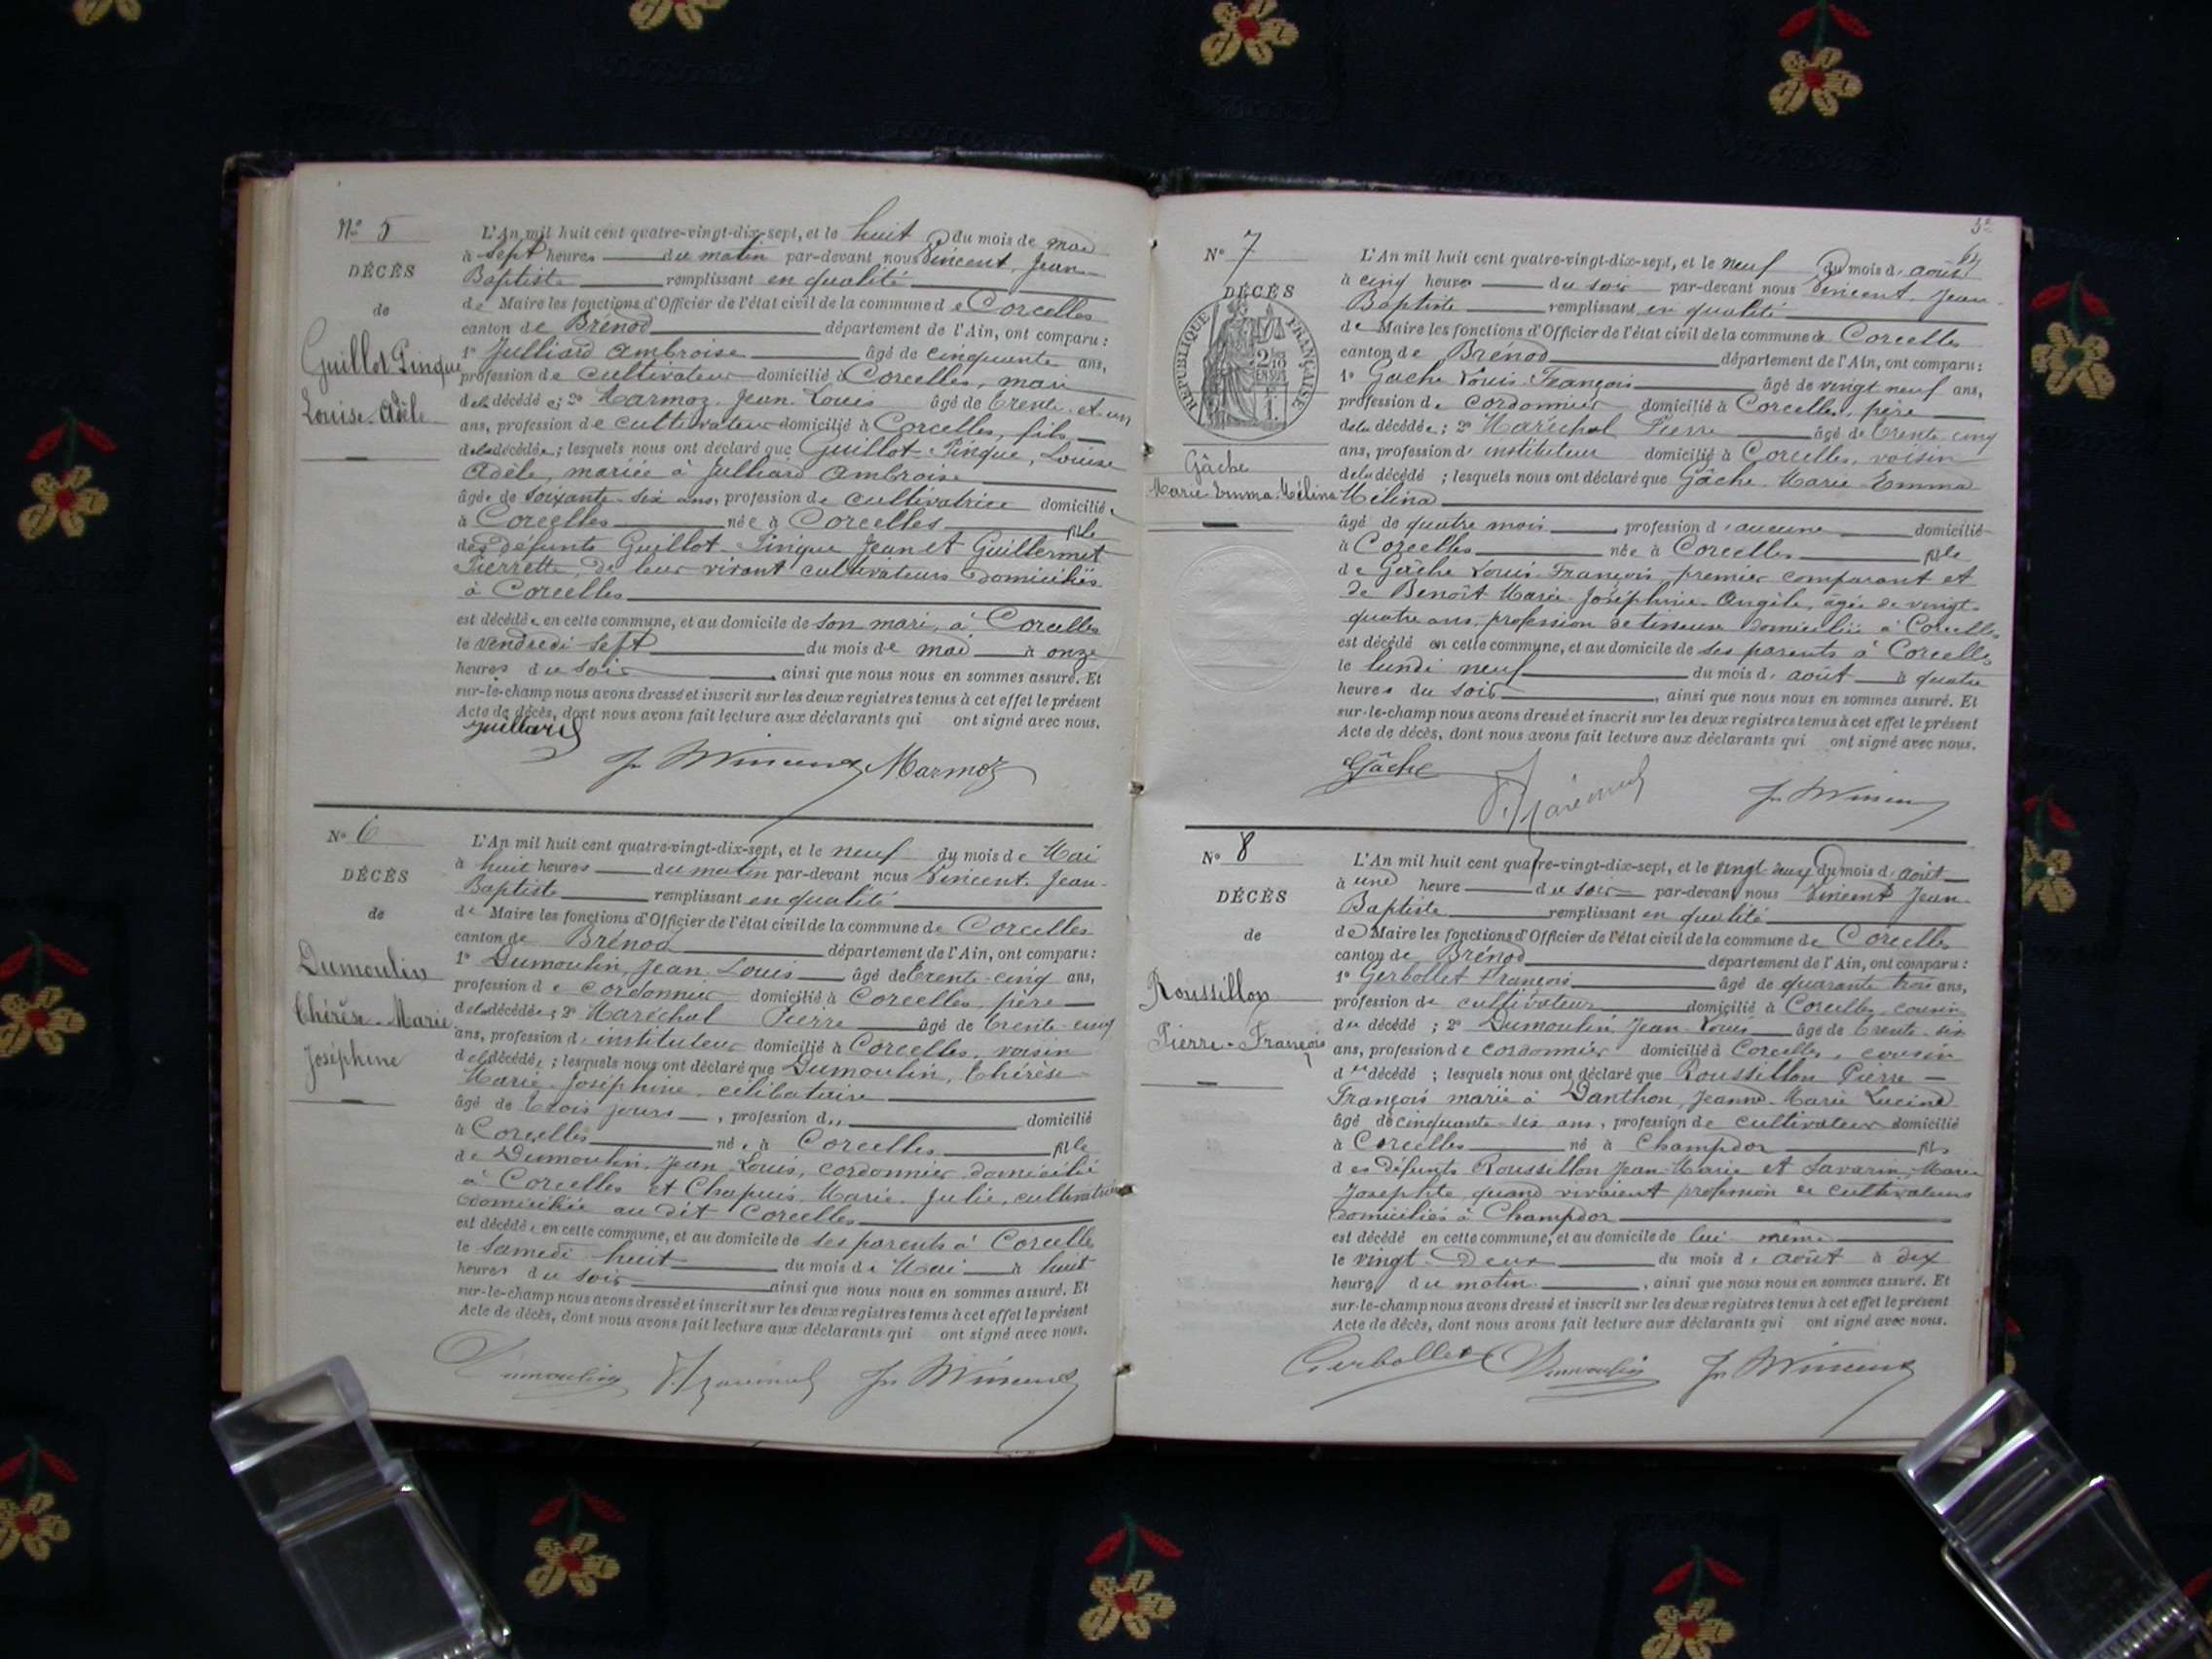 N° 5
DÉCÈS
de
Guillot Pinque
Louise-Adèle
L'An mil huit cent quatre-vingt-dix-sept, et le huit du mois de mai
à sept heures du matin par-devant nous Vincent, Jean-
Baptiste remplissant en qualité
de Maire les fonctions d'Officier de l'état civil de la commune de Corcelles
canton de Brénod département de l'Ain, ont comparu :
1° Julliard Ambroise âgé de cinquante ans,
profession de cultivateur domicilié à Corcelles, mari
de la décédée ; 2° Marmoz Jean-Louis âgé de trente-et-un
ans, profession de cultivateur domicilié à Corcelles, fils
de la décédée ; lesquels nous ont déclaré que Guillot-Pinque, Louise
Adèle, mariée à Julliard Ambroise
âgée de soixante-six ans, profession de cultivatrice domiciliée
à Corcelles née à Corcelles fille
des défunts Guillot-Pinque Jean et Guillermet
Pierrette, de leur vivant cultivateurs domiciliés
à Corcelles
est décédée en cette commune, et au domicile de son mari, à Corcelles
le vendredi sept du mois de mai à onze
heures du soir , ainsi que nous nous en sommes assuré. Et
sur-le-champ nous avons dressé et inscrit sur les deux registres tenus à cet effet le présent
Acte de décès, dont nous avons fait lecture aux déclarants qui ont signé avec nous.
Juillard
Jn Bte Vincent Marmoz
N° 6
DÉCÈS
de
Dumoulin
Thérèse-Marie
Joséphine
L'An mil huit cent quatre-vingt-dix-sept, et le neuf du mois de Mai
à huit heures du matin par-devant nous Vincent, Jean-
Baptiste remplissant en qualité
de Maire les fonctions d'Officier de l'état civil de la commune de Corcelles
canton de Brénod département de l'Ain, ont comparu :
1° Dumoulin, Jean-Louis âgé de trente-cinq ans,
profession de cordonnier domicilié à Corcelles, père
de la décédée ; 2° Maréchal Pierre âgé de trente-cinq
ans, profession d'instituteur domicilié à Corcelles, voisin
de la décédée ; lesquels nous ont déclaré que Dumoulin, Thérèse
Marie-Joséphine, célibataire
âgé de trois jours , profession d,, domicilié
à Corcelles née à Corcelles fille
de Dumoulin, Jean-Louis, cordonnier domicilié
à Corcelles et Chapuis Marie-Julie, cultivatrice
domiciliée au dit Corcelles
est décédée en cette commune, et au domicile de ses parents à Corcelles
le samedi huit du mois de Mai à huit
heures du soir ainsi que nous nous en sommes assuré. Et
sur-le-champ nous avons dressé et inscrit sur les deux registres tenus à cet effet le présent
Acte de décès, dont nous avons fait lecture aux déclarants qui ont signé avec nous.
Dumoulin P. Maréchal Jn Bte Vincent
5e
N° 7
DÉCÈS
RÉPUBLIQUE FRANÇAISE
Gâche
Marie-Emma-Mélina
L'An mil huit cent quatre-vingt-dix-sept, et le neuf du mois d'août
à cinq heures du soir par-devant nous Vincent, Jean-
Baptiste remplissant en qualité
de Maire les fonctions d'Officier de l'état civil de la commune de Corcelles
canton de Brénod département de l'Ain, ont comparu :
1° Gache Louis-François âgé de vingt neuf ans,
profession de cordonnier domicilié à Corcelles, père
de la décédée ; 2° Maréchal Pierre âgé de trente-cinq
ans, profession d'instituteur domicilié à Corcelles, voisin
de la décédé ; lesquels nous ont déclaré que Gâche Marie-Emma
Mélina
âgé de quatre mois , profession d'aucune domicilié
à Corcelles née à Corcelles fille
de Gâche Louis-François, premier comparant et
de Benoît Marie-Joséphine-Angèle, âgée de vingt-
quatre ans, profession de tisseuse domiciliée à Corcelles
est décédé en cette commune, et au domicile de ses parents à Corcelles
le lundi neuf du mois d'août à quatre
heures du soir , ainsi que nous nous en sommes assuré. Et
sur-le-champ nous avons dressé et inscrit sur les deux registres tenus à cet effet le présent
Acte de décès, dont nous avons fait lecture aux déclarants qui ont signé avec nous.
Gâche P. Maréchal Jn Bte Vincent
N° 8
DÉCÈS
de
Roussillon
Pierre-François
L'An mil huit cent quatre-vingt-dix-sept, et le vingt-deux du mois d'août
à une heure du soir par-devant nous Vincent Jean-
Baptiste remplissant en qualité
de Maire les fonctions d'Officier de l'état civil de la commune de Corcelles
canton de Brénod département de l'Ain, ont comparu :
1° Gerbollet François âgé de quarante trois ans,
profession de cultivateur domicilié à Corcelles, cousin
du décédé ; 2° Dumoulin, Jean-Louis âgé de trente-six
ans, profession de cordonnier domicilié à Corcelles, cousin
du décédé ; lesquels nous ont déclaré que Roussillon Pierre-
François marié à Danthon, Jeanne-Marie Lucine
âgé de cinquante-six ans, profession de cultivateur domicilié
à Corcelles né à Champdor fils
des défunts Roussillon Jean-Marie et Savarin Marie
Josephte, quand vivaient profession de cultivateurs
domiciliés à Champdor
est décédé en cette commune, et au domicile de lui même
le vingt-deux du mois de août à dix
heures du matin , ainsi que nous nous en sommes assuré. Et
sur-le-champ nous avons dressé et inscrit sur les deux registres tenus à cet effet le présent
Acte de décès, dont nous avons fait lecture aux déclarants qui ont signé avec nous.
Gerbollet Dumoulin Jn Bte Vincent